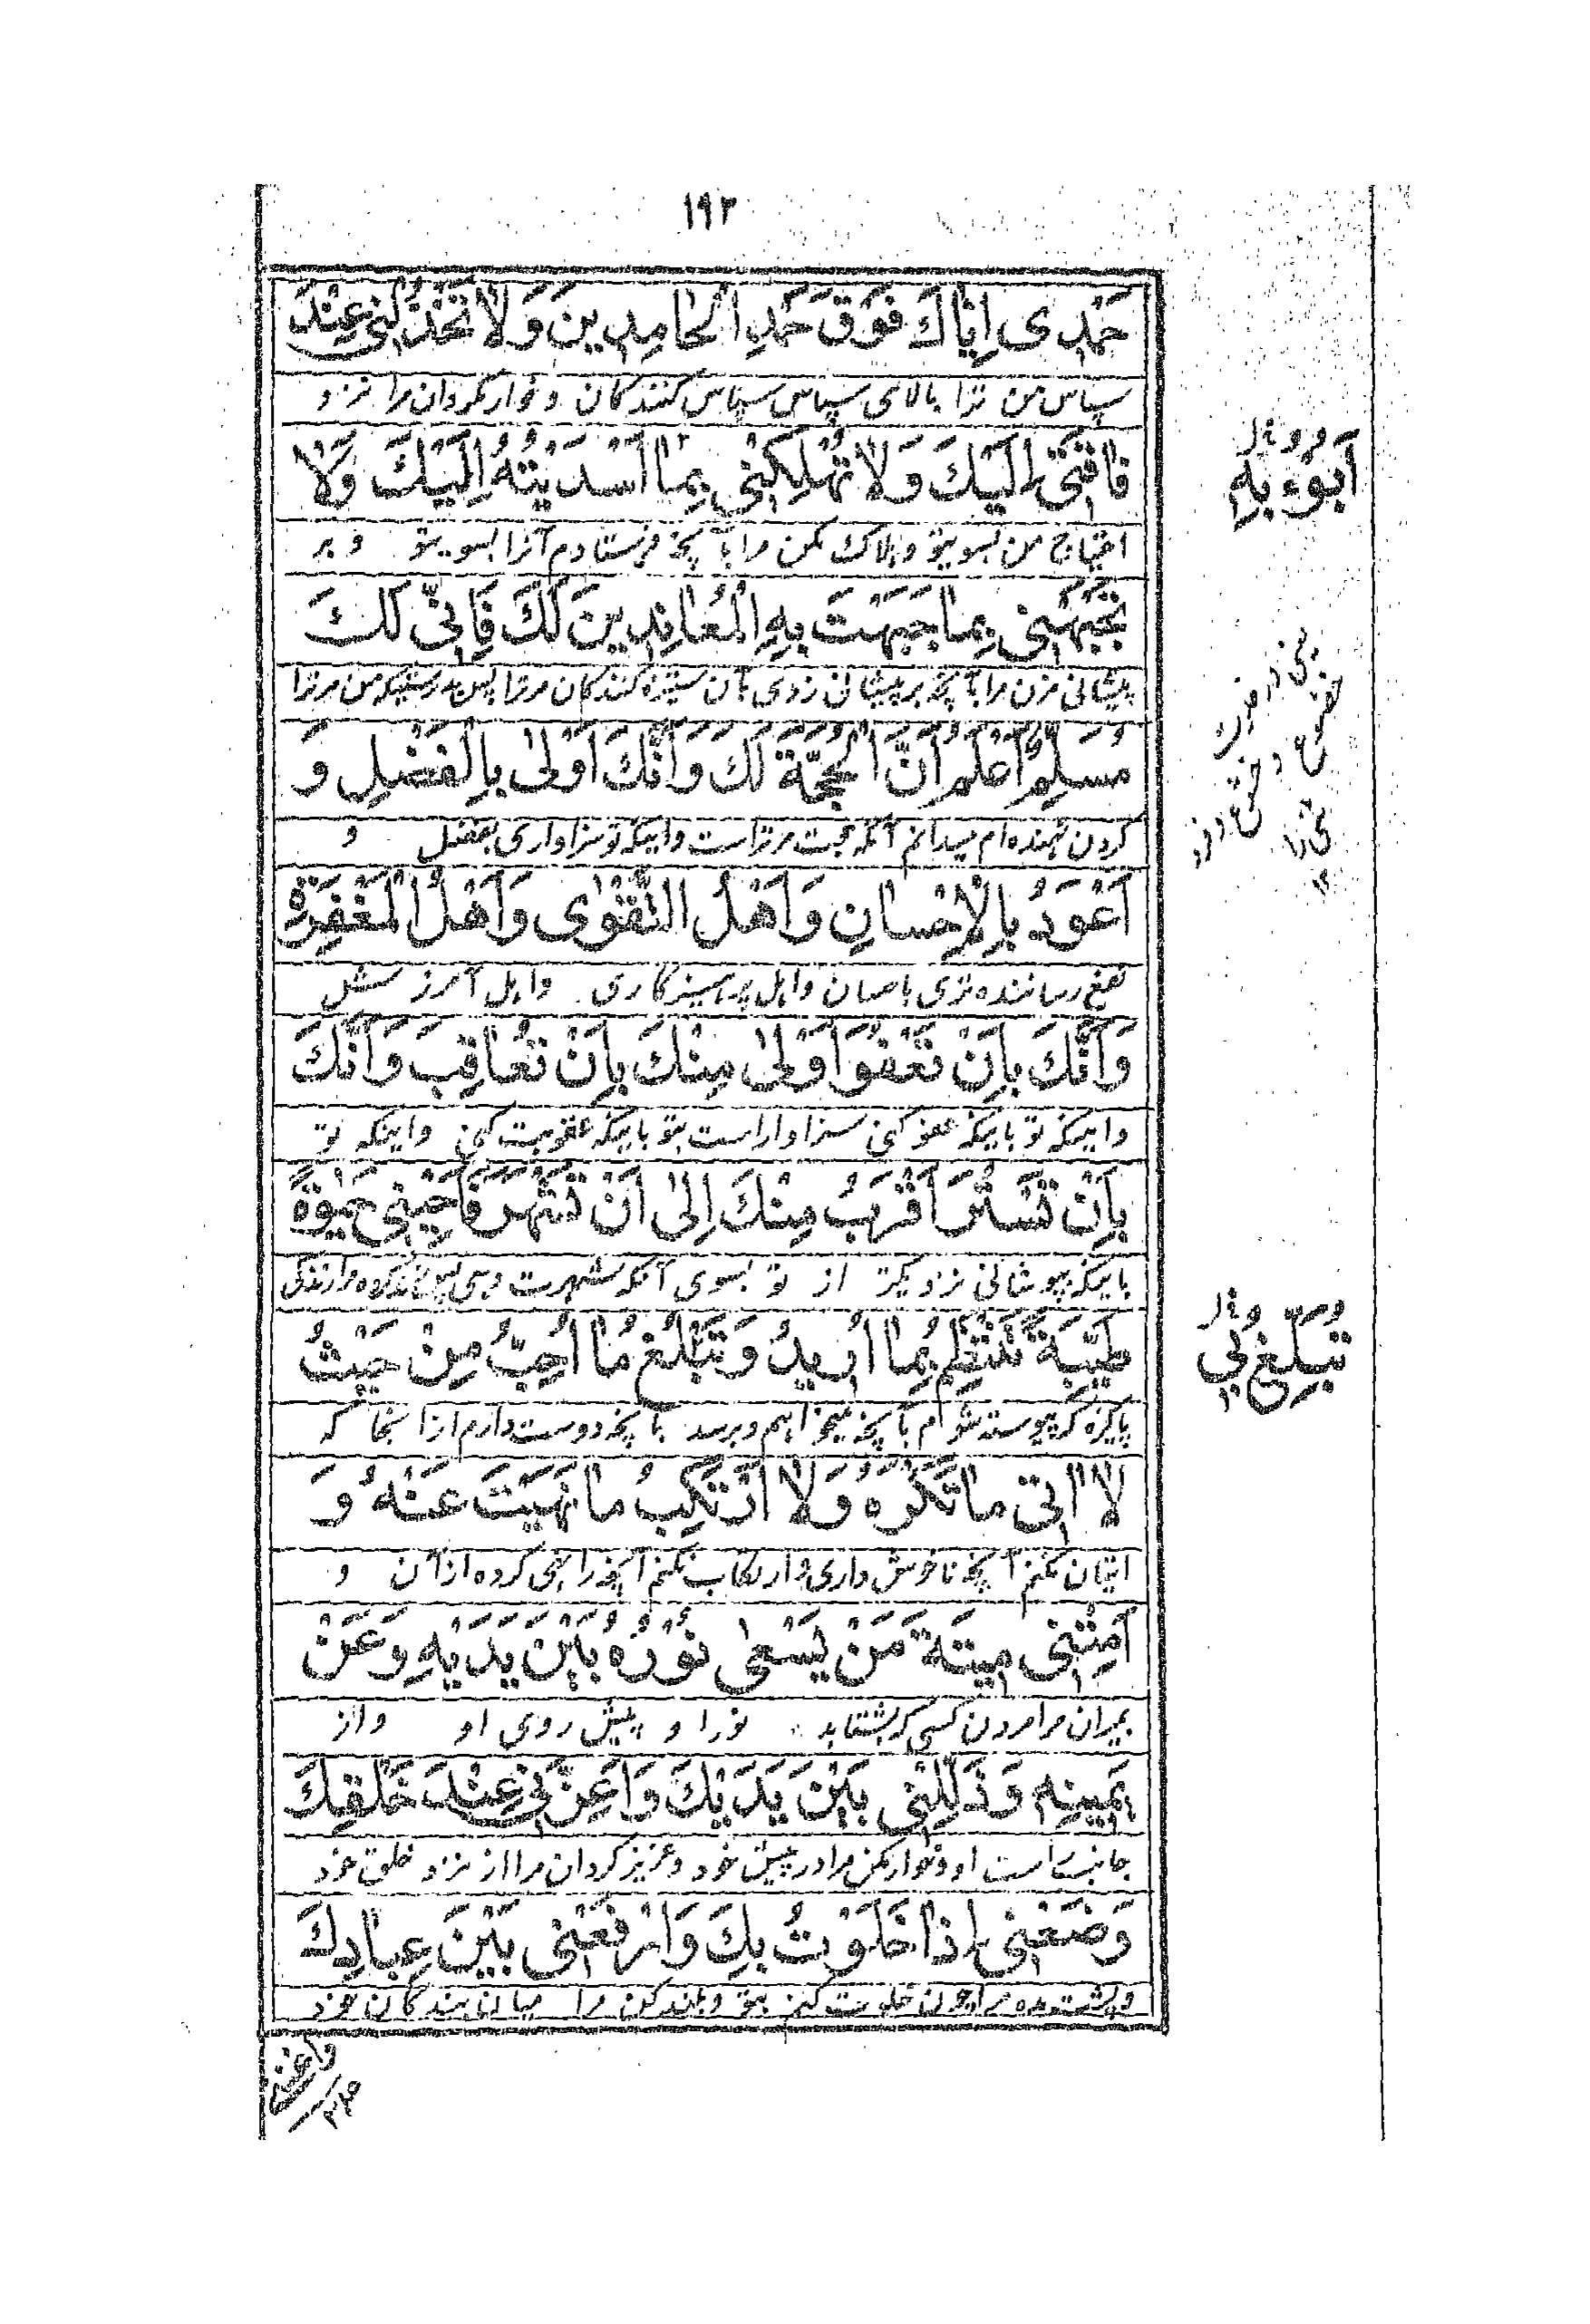 ۱۹۲
حَمْدِی اِیّاکَ فَوْقَ حَمْدِ الْحامِدِینَ وَلا تَخْذُلْنِی عِنْدَ
سپاس من ترا بالای سپاس سپاس کنندکان وخوار مکردان مرا نزد
فاقَتِی اِلَیْکَ وَلا تُهْلِکْنِی بِما اَسْدَیْتُهُ اِلَیْکَ وَلا
احتیاج من بسویتو وهلاک مکن مرا بآنچه فرستادم آنرا بسویتو وبر
تَجْبَهْنِی بِما جَبَهْتَ بِهِ الْمُعانِدِینَ لَکَ فَاِنِّی لَکَ
پیشانی مزن مرا بآنچه بر پیشانی زدی بآن ستیزه کنندکان مرترا پس بدرستیکه من مرترا
مُسَلِّمٌ اَعْلَمُ اَنَّ الْحُجَّةَ لَکَ وَاَنَّکَ اَوْلیٰ بِالْفَضْلِ وَ
کردن نهنده ام میدانم آنکه حجت مرتراست واینکه تو سزاواری بفضل و
اَعْوَدُ بِالْاِحْسانِ وَاَهْلُ التَّقْوٰی وَاَهْلُ الْمَغْفِرَةِ
نفع رساننده تری باحسان واهل پرهیزکاری واهل آمرزش
وَاَنَّکَ بِاَنْ تَعْفُوَ اَوْلیٰ مِنْکَ بِاَنْ تُعاقِبَ وَاَنَّکَ
واینکه تو باینکه عفو کنی سزاوار است بتو باینکه عقوبت کنی واینکه تو
بِاَنْ تَسْتُرَ اَقْرَبُ مِنْکَ اِلیٰ اَنْ تَشْهَرَ فَاَحْیِنِی حَیٰوةً
باینکه بپوشانی نزدیکتر از تو بسوی آنکه شهرت دهی پس زنده کردان مرا زندکی
طَیِّبَةً تَنْتَظِمُ بِما اُرِیدُ وَتَبْلُغُ ما اُحِبُّ مِنْ حَیْثُ
پاکیزه که پیوسته شوم بآنچه میخواهم وبرسد بآنچه دوست دارم از آنجا که
لا اٰتِی ما تَکْرَهُ وَلا اَرْتَکِبُ ما نَهَیْتَ عَنْهُ وَ
اتیان نکنم آنچه ناخوش داری وارتکاب نکنم آنچه را نهی کرده از آن و
اَمِتْنِی مِیتَةَ مَنْ یَسْعیٰ نُوْرُهُ بَیْنَ یَدَیْهِ وَعَنْ
بمیران مرا مردن کسی که بشتابد نور او پیش روی او واز
یَمِینِهِ وَذَلِّلْنِی بَیْنَ یَدَیْکَ وَاَعِزَّنِی عِنْدَ خَلْقِکَ
جانب راست او وخوار کن مرا در پیش خود وعزیز کردان مرا از نزد خلق خود
وَضَعْنِی اِذا خَلَوْتُ بِکَ وَارْفَعْنِی بَیْنَ عِبادِکَ
وپست مرا چون خلوت کنم بتو وبلند کن مرا میان بندکان خود
اَبُوْءُ بِهِ
تَبْلُغُ بِی